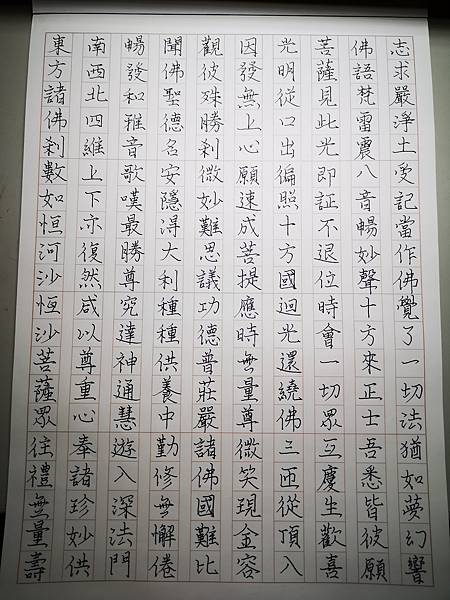 東方諸佛剎數如恒河沙恒沙菩薩眾往禮無量壽
南西北四維上下亦復然咸以尊重心奉諸珍妙供
暢發和雅音歌嘆最勝尊究達神通慧遊入深法門
聞佛聖德名安隱得大利種種供養中勤修無懈倦
觀彼殊勝剎微妙難思議功德普莊嚴諸佛國難比
因發無上心願速成菩提應時無量尊微笑現金容
光明從口出徧照十方國迴光還繞佛三匝從頂入
菩薩見此光即証不退位時會一切眾互慶生歡喜
佛語梵雷震八音暢妙聲十方來正士吾悉皆彼願
志求嚴淨土受記當作佛覺了一切法猶如夢幻響